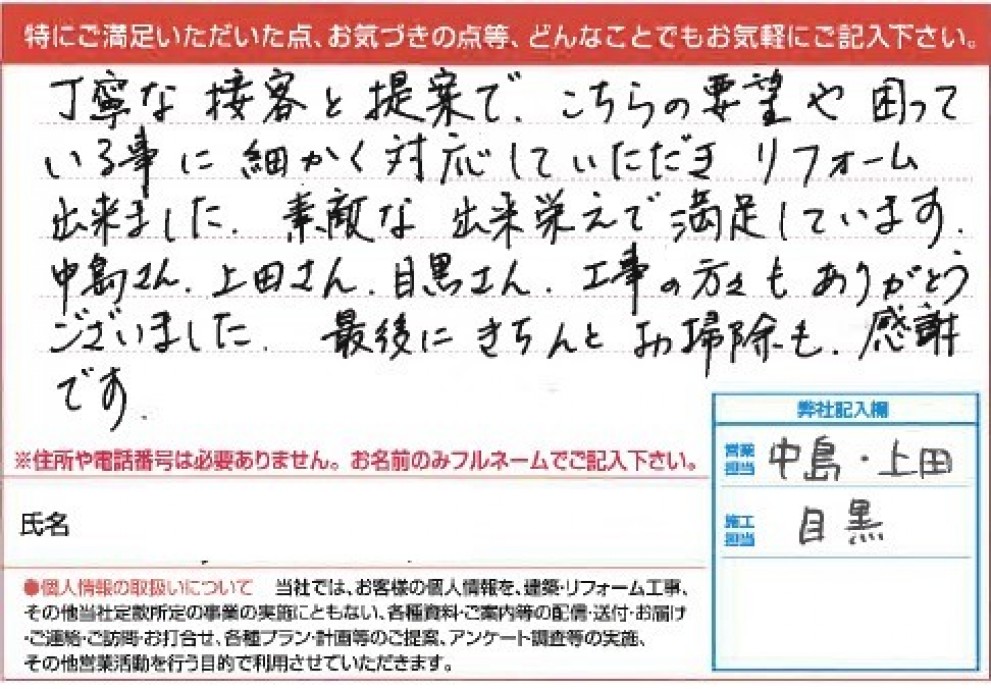 特にご満足いただいた点、お気づきの点等、どんなことでもお気軽にご記入下さい。
丁寧な接客と提案で、こちらの要望や困って
いる事に細かく対応していただき リフォーム
出来ました。素敵な出来栄えで満足しています。
中島さん、上田さん、目黒さん、工事の方々もありがとう
ございました。最後にきちんとお掃除も、感謝
です。
弊社記入欄
営業担当 中島・上田
施工担当 目黒
※住所や電話番号は必要ありません。お名前のみフルネームでご記入下さい。
氏名
●個人情報の取扱いについて 当社では、お客様の個人情報を、建築・リフォーム工事、
その他当社定款所定の事業の実施にともない、各種資料・ご案内等の配信・送付・お届け
・ご連絡・ご訪問・お打合せ、各種プラン・計画等のご提案、アンケート調査等の実施、
その他営業活動を行う目的で利用させていただきます。